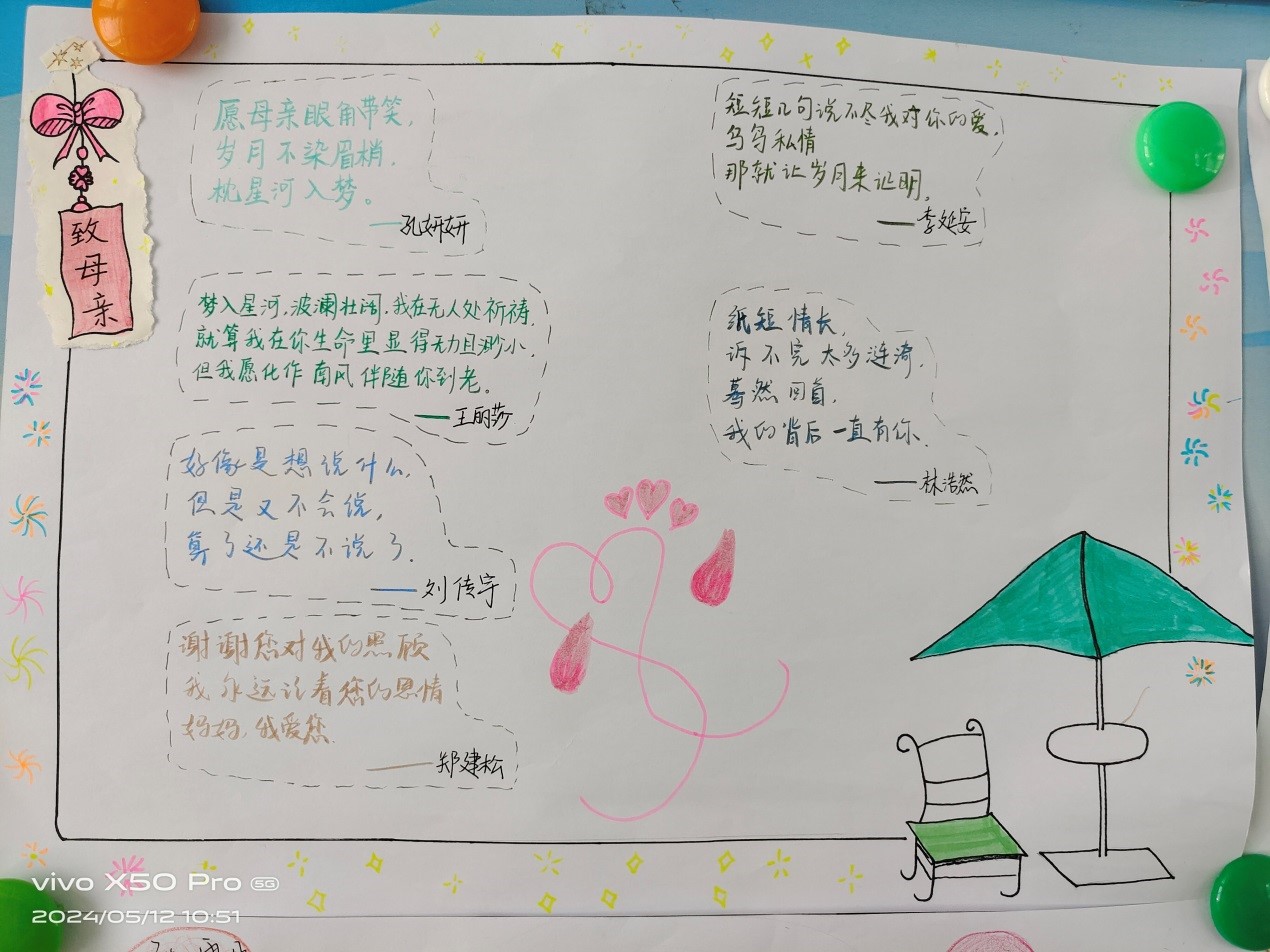 致母亲
愿母亲眼角带笑,
岁月不染眉梢.
枕星河入梦。
——孔妍妍
梦入星河,波澜壮阔.我在无人处祈祷.
就算我在你生命里显得无力且渺小.
但我愿化作南风伴随你到老。
——王丽莎
好像是想说什么,
但是又不会说,
算了还是不说了.
——刘传宇
谢谢您对我的照顾
我永远记着您的恩情
妈妈,我爱您.
——郑建松
短短几句说不尽我对你的爱,
鸟鸟私情
那就让岁月来证明.
——李延安
纸短情长,
诉不完太多涟漪.
蓦然回首,
我的背后一直有你.
——林浩然
vivo X50 Pro 5G
2024/05/12 10:51